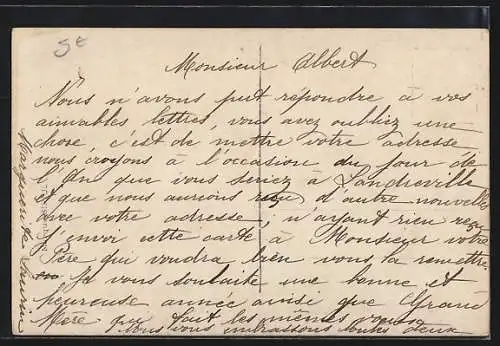 5€
Monsieur Albert
Nous n'avons put répondre à vos
aimables lettres, vous avez oubliez une
chose, c'est de mettre votre adresse
nous croyons à l'occasion du jour de
l'An que vous seriez à Landreville
et que nous aurions reçu d'autre nouvelles
avec votre adresse ; n'ayant rien reçu
j'envoi cette carte à Monsieur votre
Père qui voudra bien vous la remettre.
Je vous souhaite une bonne et
heureuse année ainsi que Grand
Mère qui fait les mêmes vœux
nous vous embrassons toutes deux